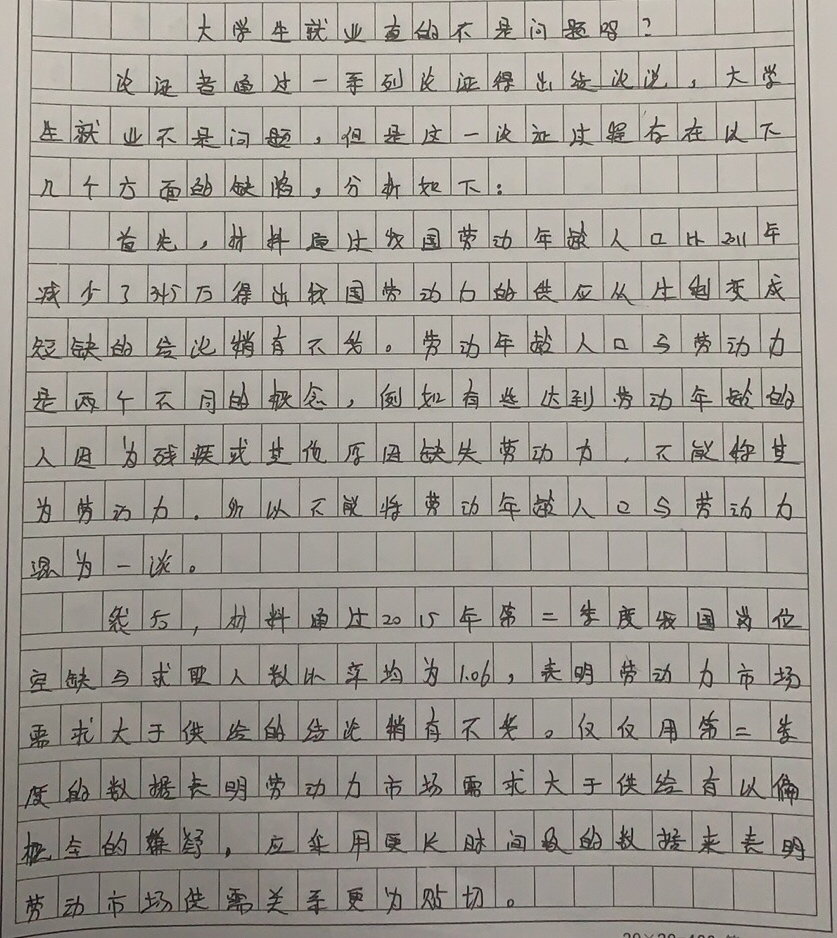 大学生就业真的不是问题吗?
论证者通过一系列论证得出结论说,大学
生就业不是问题,但是这一论证过程存在以下
几个方面的缺陷,分析如下:
首先,材料通过我国劳动年龄人口比2011年
减少了345万得出我国劳动力的供应从过剩变成
短缺的结论稍有不妥。劳动年龄人口与劳动力
是两个不同的概念,例如有些达到劳动年龄的
人因为残疾或其他原因缺失劳动力,不能称其
为劳动力,所以不能将劳动年龄人口与劳动力
混为一谈。
然后,材料通过2015年第二季度我国岗位
空缺与求职人数比率均为1.06,表明劳动力市场
需求大于供给的结论稍有不妥。仅仅用第二季
度的数据表明劳动力市场需求大于供给有以偏
概全的嫌疑,应采用更长时间段的数据来表明
劳动市场供需关系更为贴切。